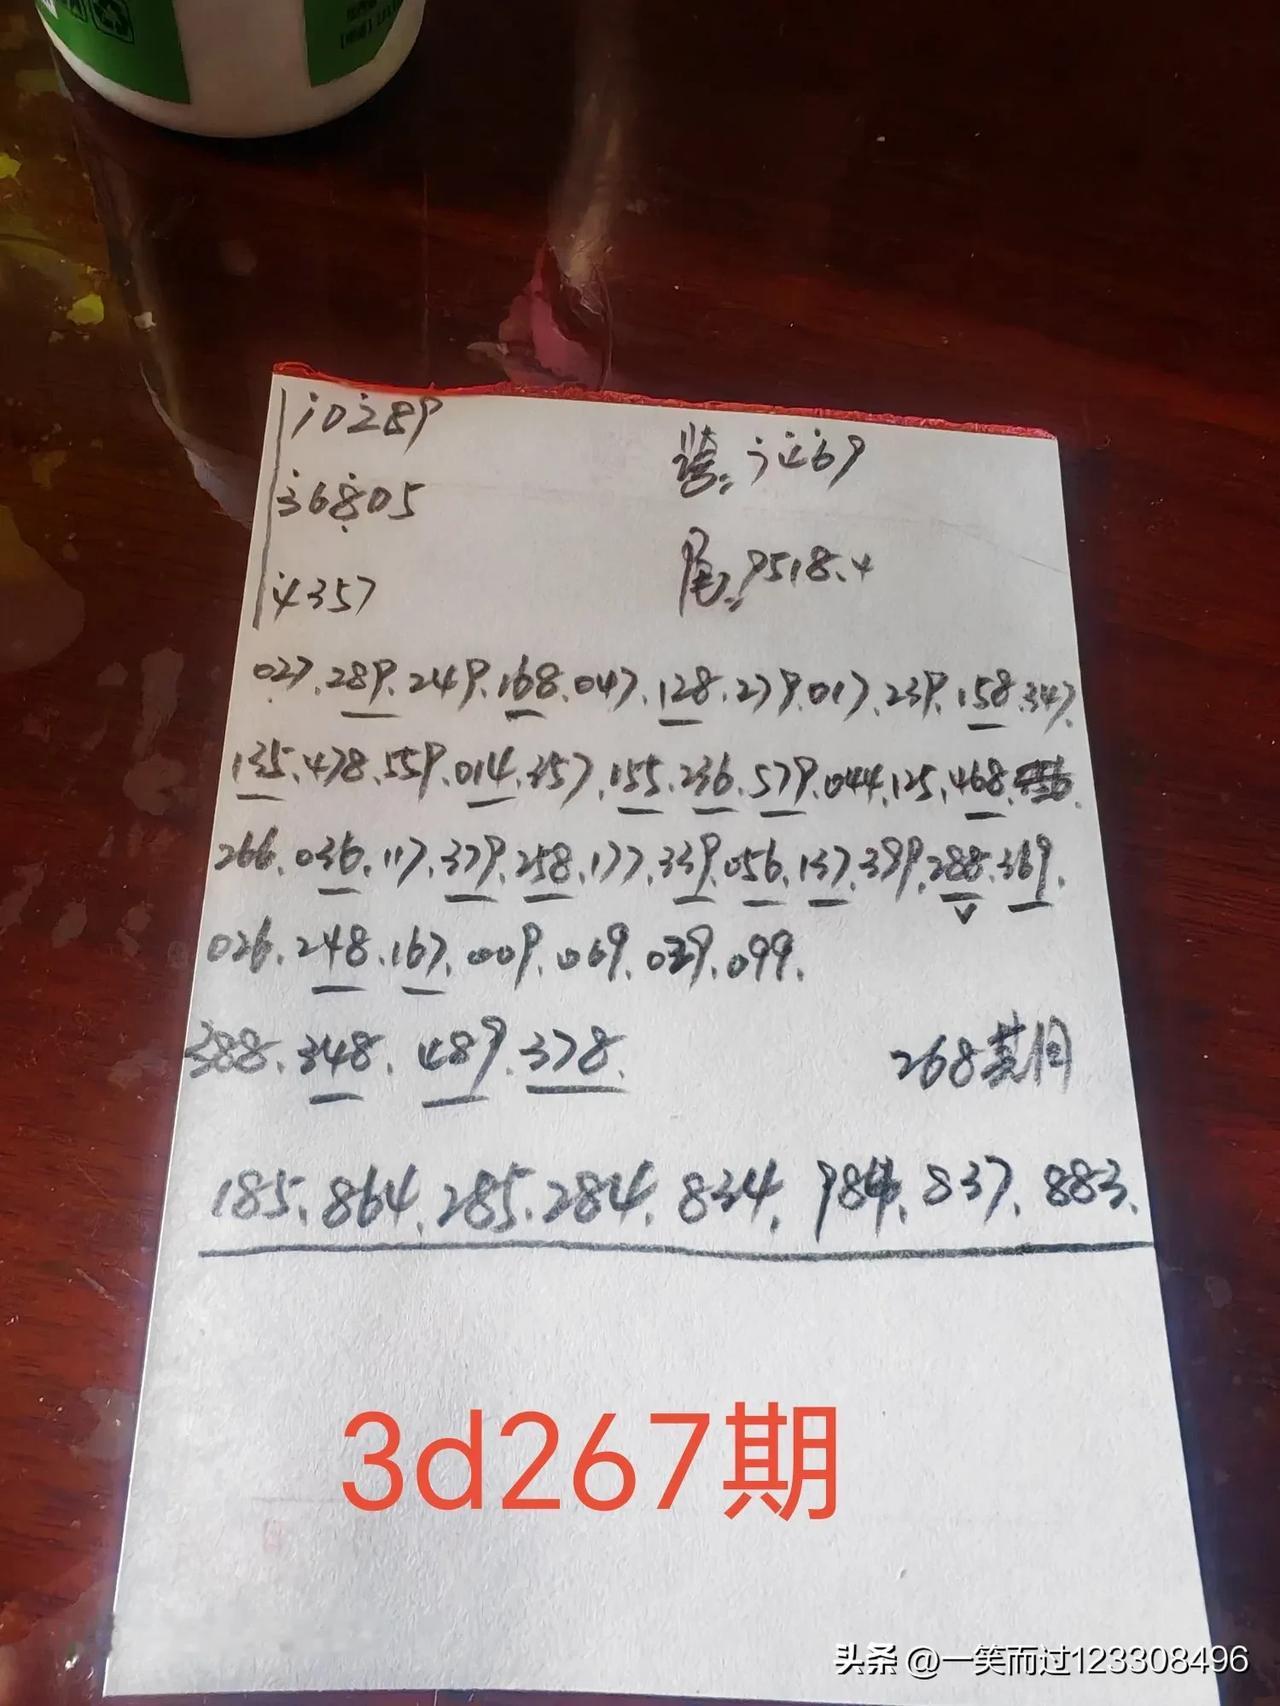 10289
跨:7469
36805
尾:9518.4
4357
027.289.249.168.047.128.279.017.239.158.347.
135.478.559.014.357.155.236.579.044.125.468.
266.036.117.379.258.177.339.056.137.399.288.369.
026.248.167.009.069.039.099.
388.348.489.378.
268其同
185.864.285.284.834.984.837.883.
3d267期
头条 @一笑而过123308496